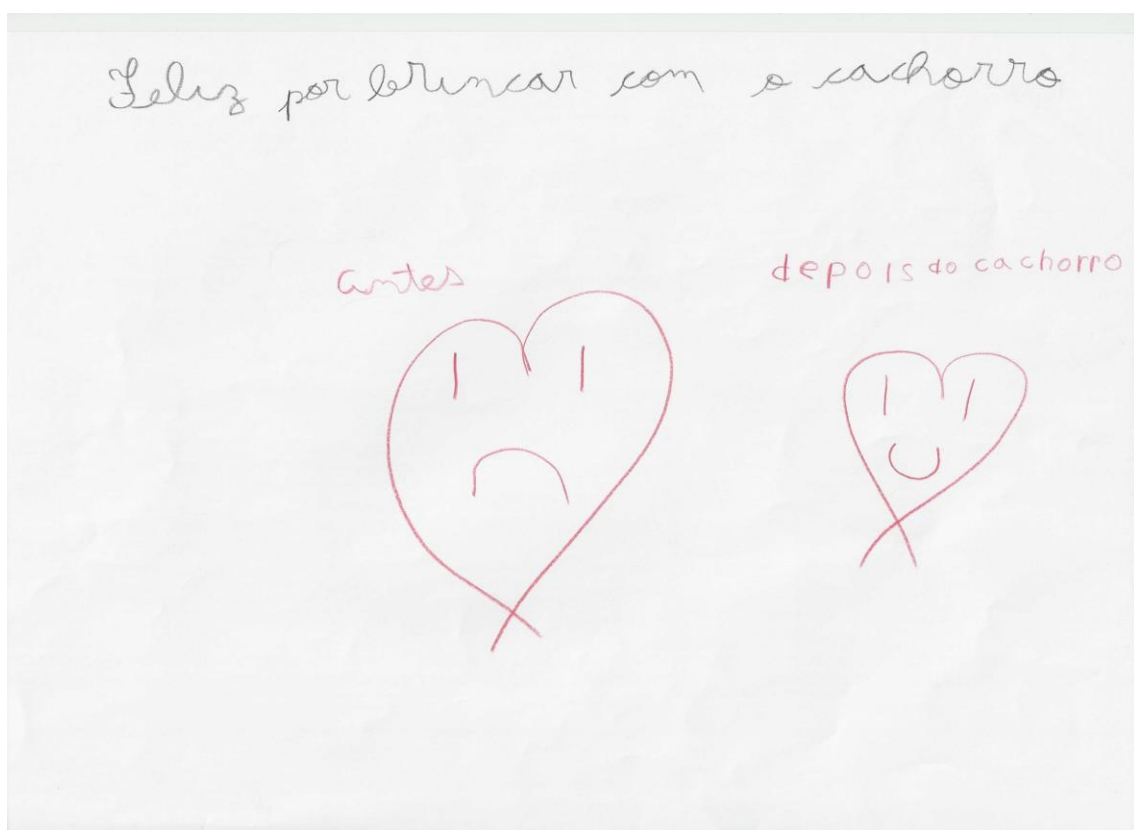 Feliz por brincar com o cachorro
antes
depois do cachorro